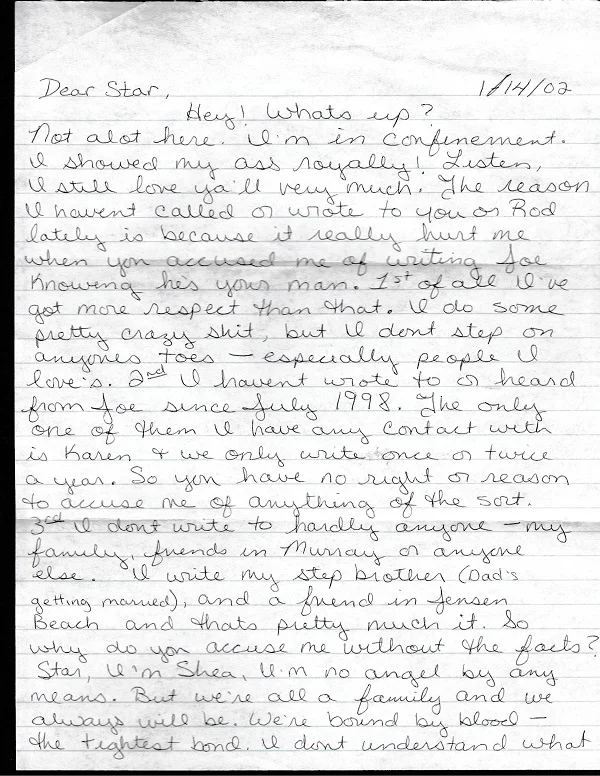 Dear Star, 1/14/02
Hey! Whats up?
Not alot here. I'm in confinement.
I showed my ass royally! Listen,
I still love ya'll very much. The reason
I havent called or wrote to you or Rod
lately is because it really hurt me
when you accused me of writing Joe
knowing he's your man. 1st of all I've
got more respect than that. I do some
pretty crazy shit, but I dont step on
anyones toes — especially people I
love's. 2nd I havent wrote to or heard
from Joe since July 1998. The only
one of them I have any contact with
is Karen & we only write once or twice
a year. So you have no right or reason
to accuse me of anything of the sort.
3rd I dont write to hardly anyone — my
family, friends in Murray or anyone
else. I write my step brother (Dad's
getting married), and a friend in Jensen
Beach and thats pretty much it. So
why do you accuse me without the facts?
Star, I'm Shea, I'm no angel by any
means. But we're all a family and we
always will be. We're bound by blood —
the tightest bond. I dont understand what